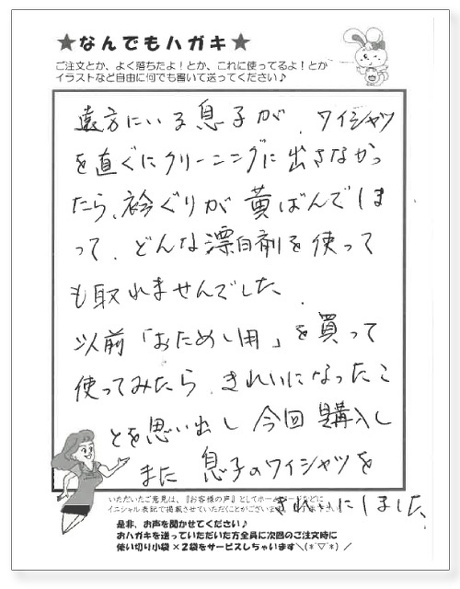 ★なんでもハガキ★
ご注文とか、よく落ちたよ！とか、これに使ってるよ！とか
イラストなど自由に何でも書いて送ってください♪
遠方にいる息子が、ワイシャツ
を直ぐにクリーニングに出さなかっ
たら、衿ぐりが黄ばんでしま
って、どんな漂白剤を使って
も取れませんでした。
以前「おためし用」を買って
使ってみたら、きれいになったこ
とを思い出し今回購入し
また息子のワイシャツを
きれいにしました。
いただいたご意見は、『お客様の声』としてホームページなどに
イニシャル表記で掲載させていただくことがございます
是非、お声を聞かせてください♪
おハガキを送っていただいた方全員に次回のご注文時に
使い切り小袋×2袋をサービスしちゃいます＼(*´▽｀*)／